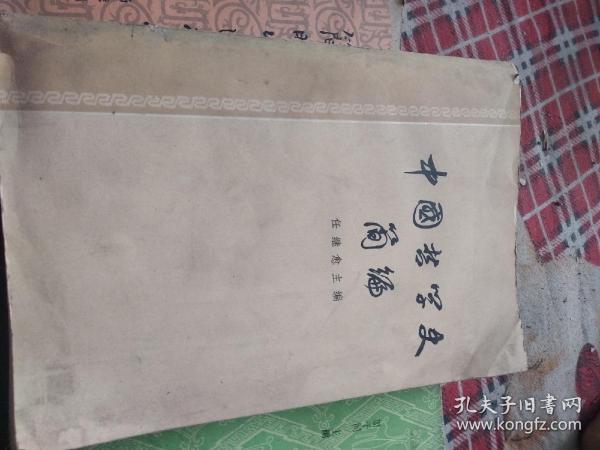 中國哲学史
简编
任继愈主编
孔夫子旧书网
www.kongfz.com